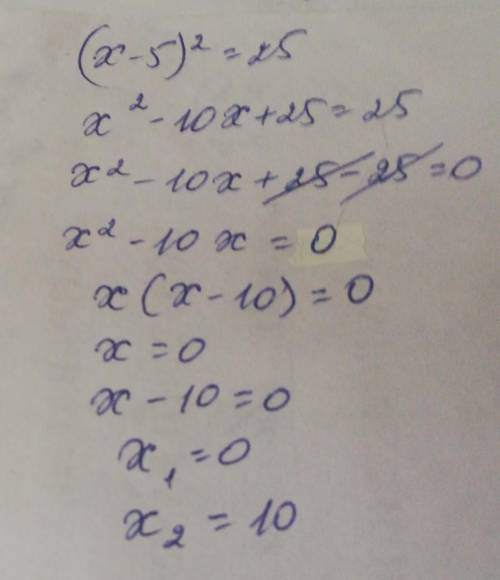 (x-5)² = 25
x² - 10x + 25 = 25
x² - 10x + 25 - 25 = 0
x² - 10x = 0
x(x - 10) = 0
x = 0
x - 10 = 0
x₁ = 0
x₂ = 10